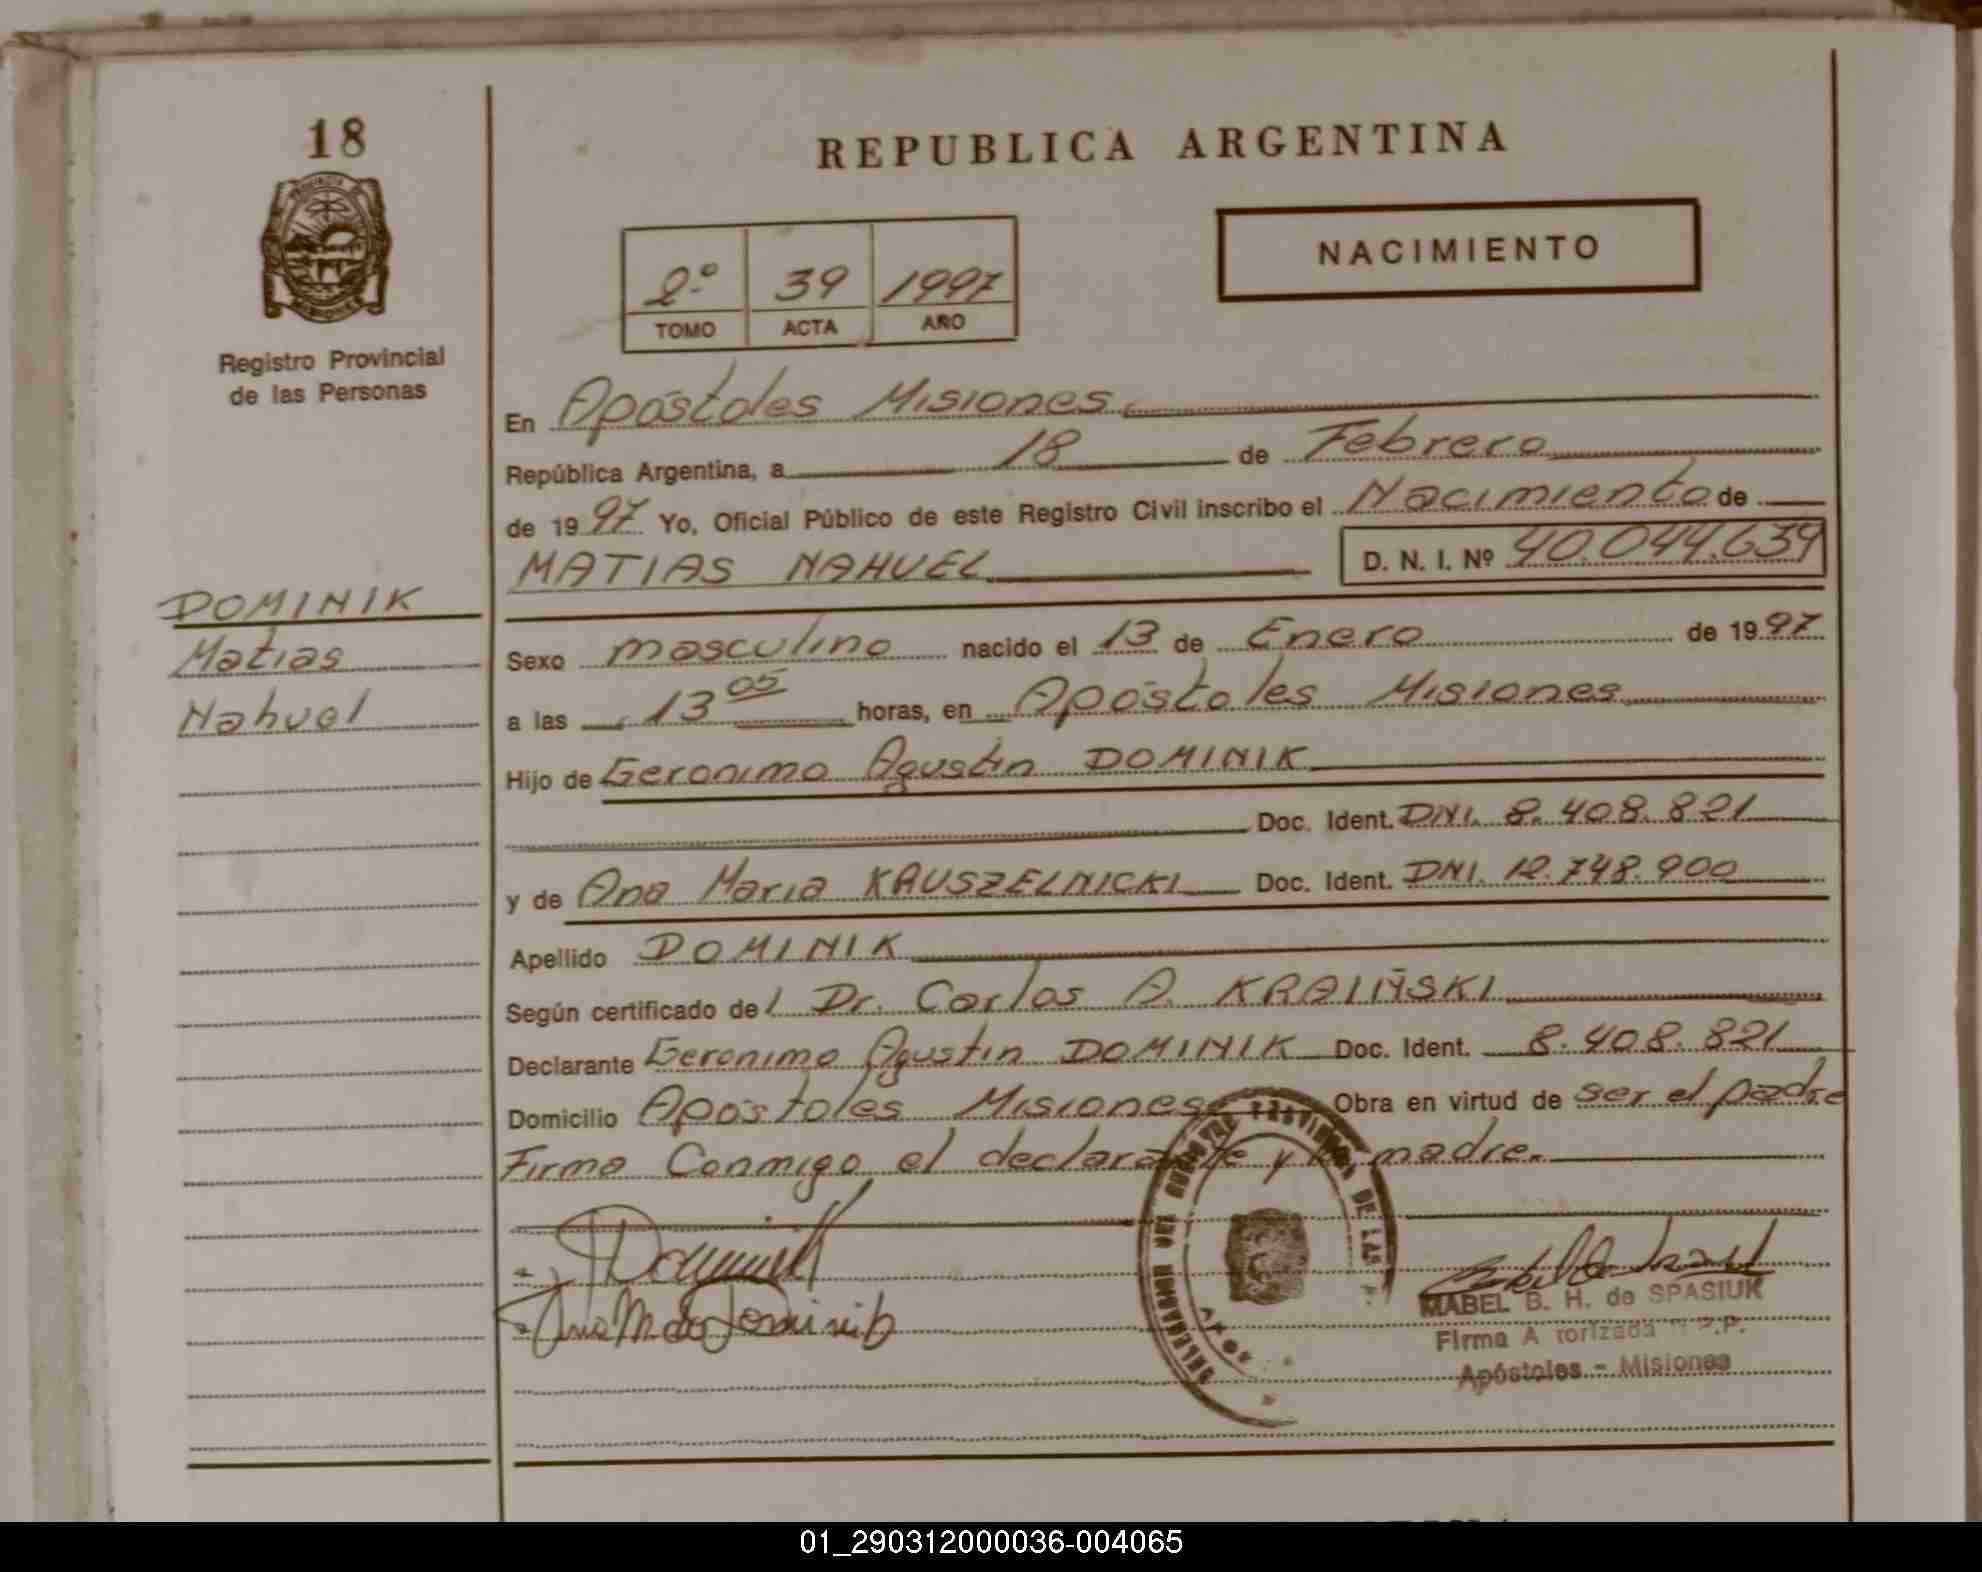 18
Registro Provincial
de las Personas
DOMINIK
Matias
Nahuel
REPUBLICA ARGENTINA
2º 39 1997
TOMO ACTA AÑO
NACIMIENTO
En Apóstoles Misiones
República Argentina, a 18 de Febrero
de 1997 Yo, Oficial Público de este Registro Civil inscribo el Nacimiento de
MATIAS NAHUEL D. N. I. Nº 40.044.639
Sexo masculino nacido el 13 de Enero de 1997
a las 13 05 horas, en Apóstoles Misiones
Hijo de Geronimo Agustin DOMINIK
Doc. Ident. DNI. 8.408.821
y de Ana Maria KRUSZELNICKI Doc. Ident. DNI. 12.748.900
Apellido DOMINIK
Según certificado del Dr. Carlos A. KRALIÑSKI
Declarante Geronimo Agustin DOMINIK Doc. Ident. 8.408.821
Domicilio Apóstoles Misiones Obra en virtud de ser el padre
Firma Conmigo el declarante y la madre.
Dominik
Ana M. de Dominik
DELEGACION DEL REGISTRO PROVINCIAL DE LAS
MABEL B. H. de SPASIUK
Firma A torizada R.P.P.
Apóstoles - Misiones
01_290312000036-004065